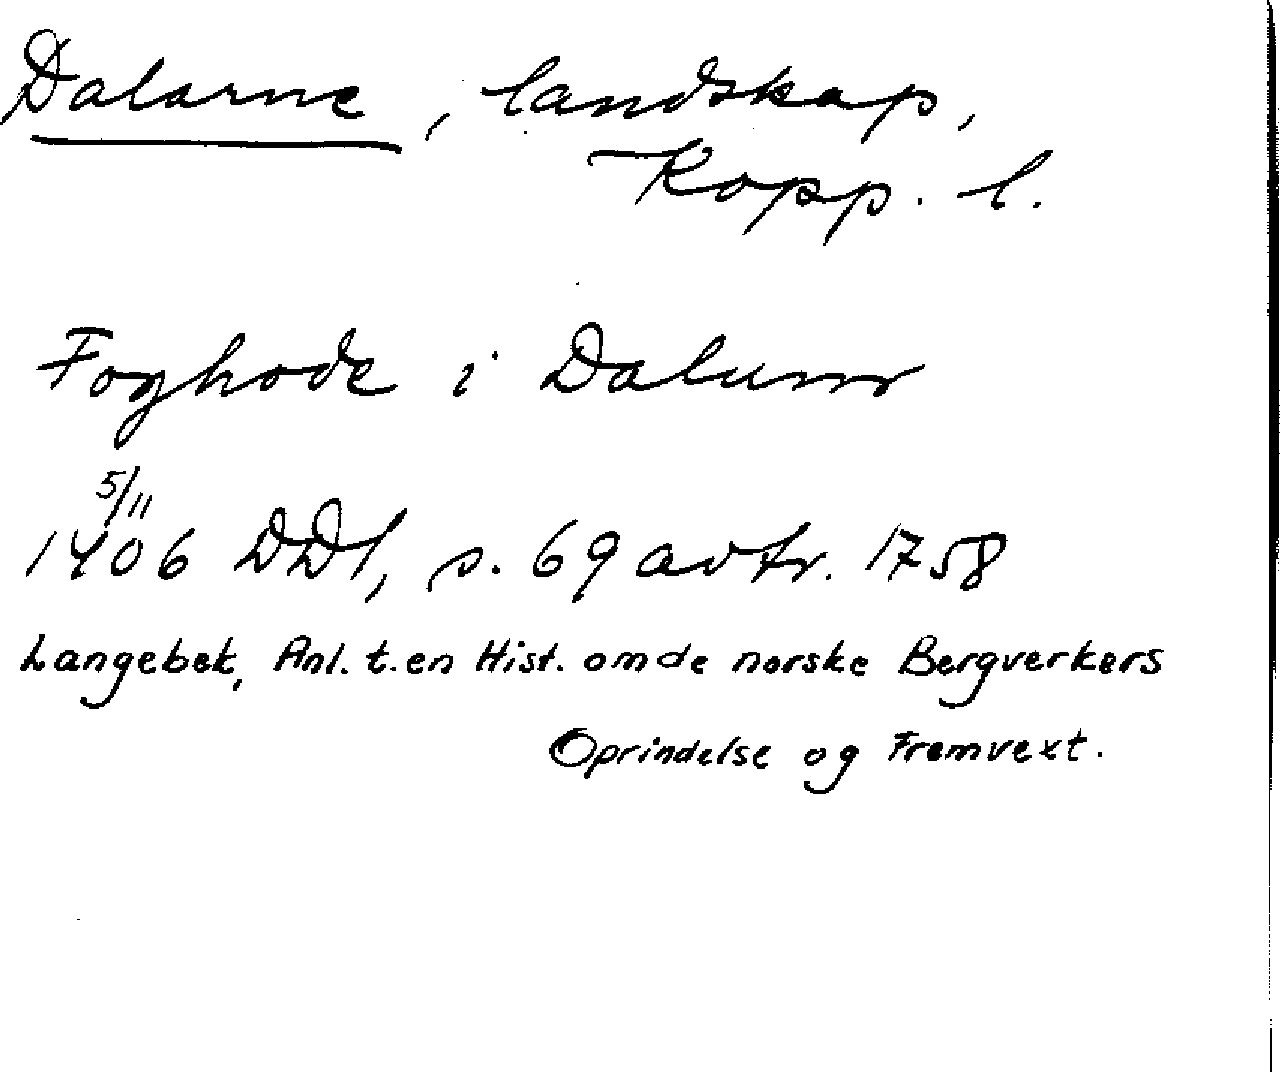 Dalarne, landskap,
Kopp. l.
Foghode i Dalum
5/11
1406 DD1, s. 69 avtr. 1758
Langebek, Anl. t. en Hist. om de norske Bergverkers
Oprindelse og Fremvext.